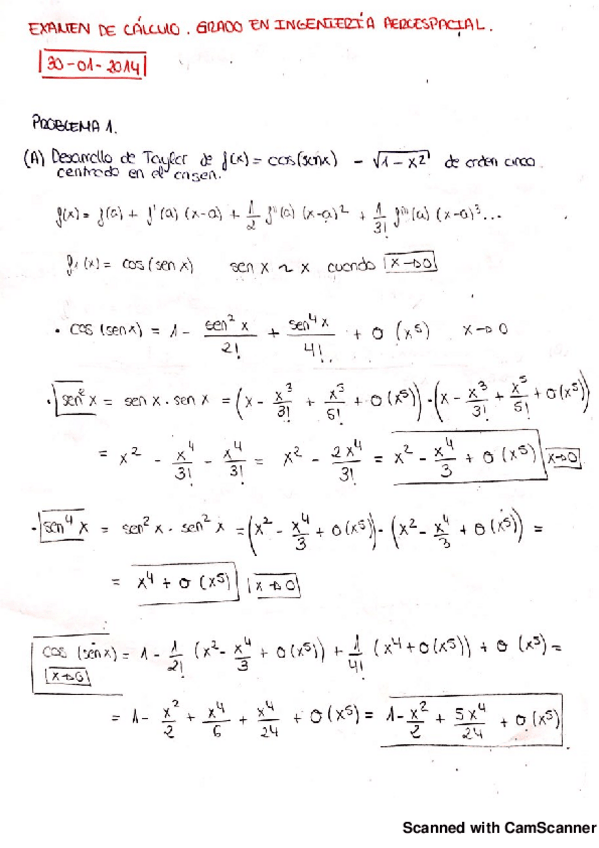 EXAMEN DE CÁLCULO. GRADO EN INGENIERÍA AEROESPACIAL.
30-01-2014
PROBLEMA 1.
(A) Desarrollo de Taylor de f(x) = cos(senx) - √(1-x²) de orden cinco
centrado en el origen.
f(x) = f(a) + f'(a) (x-a) + 1/2 f''(a) (x-a)² + 1/3! f'''(a) (x-a)³...
f₁(x) = cos(sen x) sen x ~ x cuando x→0
• cos (senx) = 1 - sen²x/2! + sen⁴x/4! + o(x⁵) x→0
• sen²x = sen x · sen x = (x - x³/3! + x⁵/5! + o(x⁵)) · (x - x³/3! + x⁵/5! + o(x⁵))
= x² - x⁴/3! - x⁴/3! = x² - 2x⁴/3! = x² - x⁴/3 + o(x⁵) x→0
• sen⁴ x = sen²x · sen²x = (x² - x⁴/3 + o(x⁵)) · (x² - x⁴/3 + o(x⁵)) =
= x⁴ + o(x⁵) x→0
cos (senx) = 1 - 1/2! (x² - x⁴/3 + o(x⁵)) + 1/4! (x⁴ + o(x⁵)) + o(x⁵) =
x→0
= 1 - x²/2 + x⁴/6 + x⁴/24 + o(x⁵) = 1 - x²/2 + 5x⁴/24 + o(x⁵)
Scanned with CamScanner